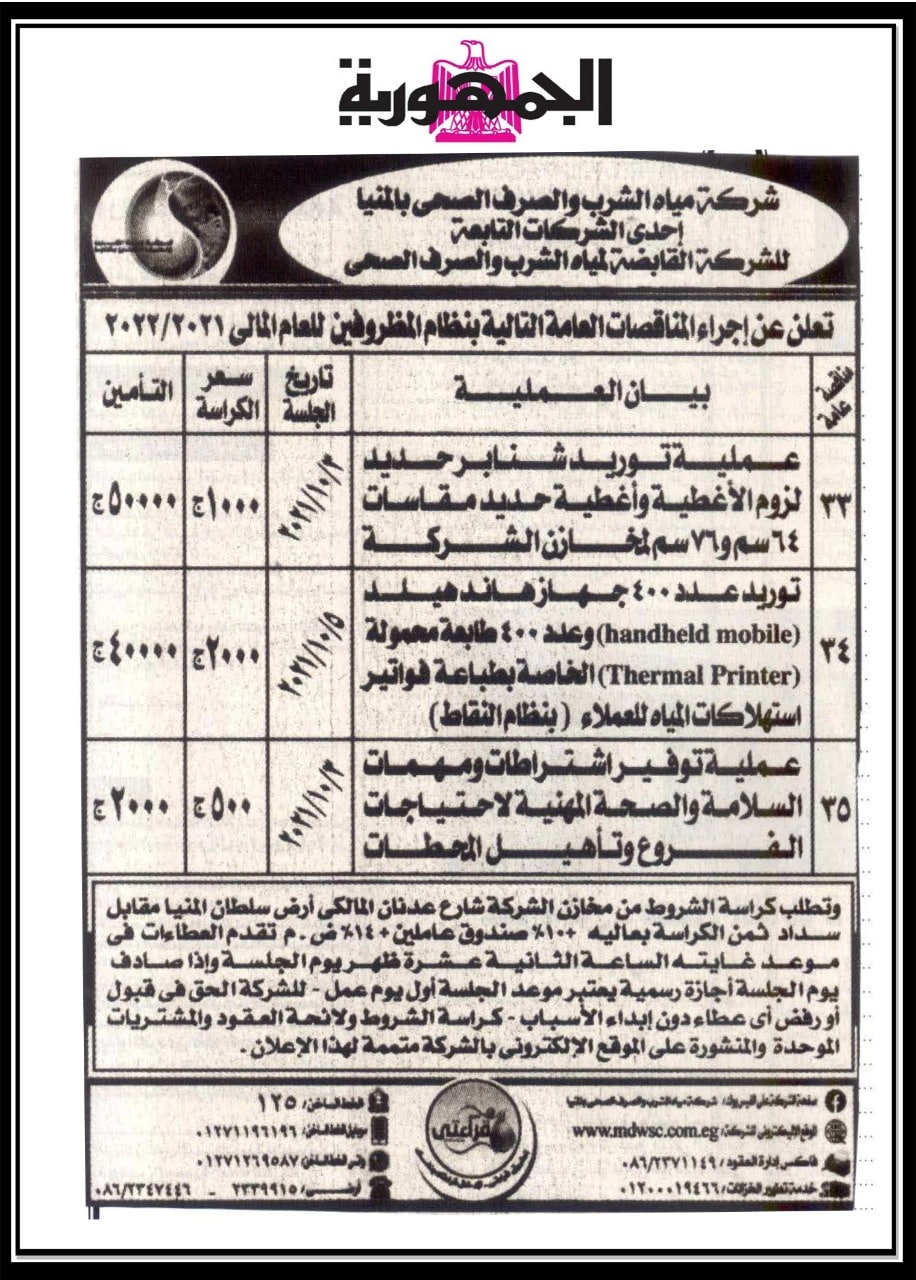 الجمهورية
شركة مياه الشرب والصرف الصحى بالمنيا
إحدى الشركات التابعة
للشركة القابضة لمياه الشرب والصرف الصحى
تعلن عن إجراء المناقصات العامة التالية بنظام المظروفين للعام المالى ٢٠٢٢/٢٠٢١
مناقصة عامة
بيان العملية
تاريخ الجلسة
سعر الكراسة
التأمين
٣٣
عملية توريد شنابر حديد
لزوم الأغطية وأغطية حديد مقاسات
٦٤ سم و٧٦ سم لمخازن الشركة
٢٠٢١/١٠/٣
١٠٠٠ج
٥٠٠٠٠ج
٣٤
توريد عدد ٤٠٠ جهاز هاند هيلد
(handheld mobile) وعدد ٤٠٠ طابعة محمولة
(Thermal Printer) الخاصة بطباعة فواتير
استهلاكات المياه للعملاء (بنظام النقاط)
٢٠٢١/١٠/٥
٢٠٠٠ج
٤٠٠٠٠ج
٣٥
عملية توفير اشتراطات ومهمات
السلامة والصحة المهنية لاحتياجات
الفروع وتأهيل المحطات
٢٠٢١/١٠/٣
٥٠٠ج
٢٠٠٠ج
وتطلب كراسة الشروط من مخازن الشركة شارع عدنان المالكى أرض سلطان المنيا مقابل
سداد ثمن الكراسة بعاليه +١٠٪ صندوق عاملين +١٤٪ ض.م تقدم العطاءات فى
موعد غايته الساعة الثانية عشرة ظهر يوم الجلسة وإذا صادف
يوم الجلسة أجازة رسمية يعتبر موعد الجلسة أول يوم عمل - للشركة الحق فى قبول
أو رفض أى عطاء دون إبداء الأسباب - كراسة الشروط ولائحة العقود والمشتريات
الموحدة والمنشورة على الموقع الإلكترونى بالشركة متممة لهذا الإعلان.
صفحة الشركة على الفيسبوك/ شركة مياه الشرب والصرف الصحى بالمنيا
الموقع الإلكترونى للشركة/ www.mdwsc.com.eg
فاكس إدارة العقود/ ٠٨٦/٢٣٧١١٤٩
خدمة تطهير الخزانات/ ٠١٢٠٠٠١٩٤٦٦
الخط الساخن/ ١٢٥
موبايل الخط الساخن/ ٠١٢٧١١٩٦١٩٦
واتس الخط الساخن/ ٠١٢٧١٢٦٩٥٨٧
أرضى/ ٢٣٣٩٩١٥ - ٠٨٦/٢٣٤٧٤٤٦
قراءتى